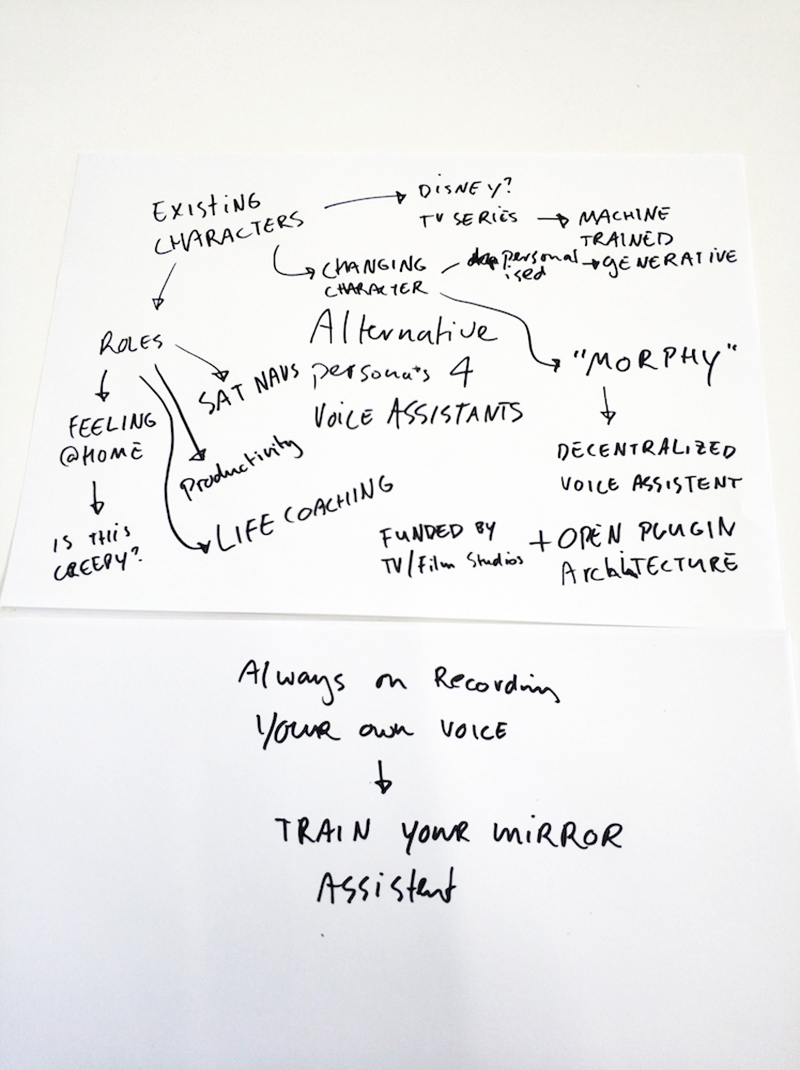 EXISTING
CHARACTERS
DISNEY?
TV SERIES
MACHINE
TRAINED
CHANGING
CHARACTER
personal
ised
GENERATIVE
ROLES
Alternative
persona's 4
VOICE ASSISTANTS
SAT NAVS
"MORPHY"
FEELING
@HOME
Productivity
DECENTRALIZED
VOICE ASSISTENT
LIFE COACHING
IS THIS
CREEPY?
FUNDED BY
TV/Film Studios
+ OPEN PLUGIN
ArchitECTURE
Always on Recording
YOUR own VOICE
TRAIN YOUR MIRROR
Assistent